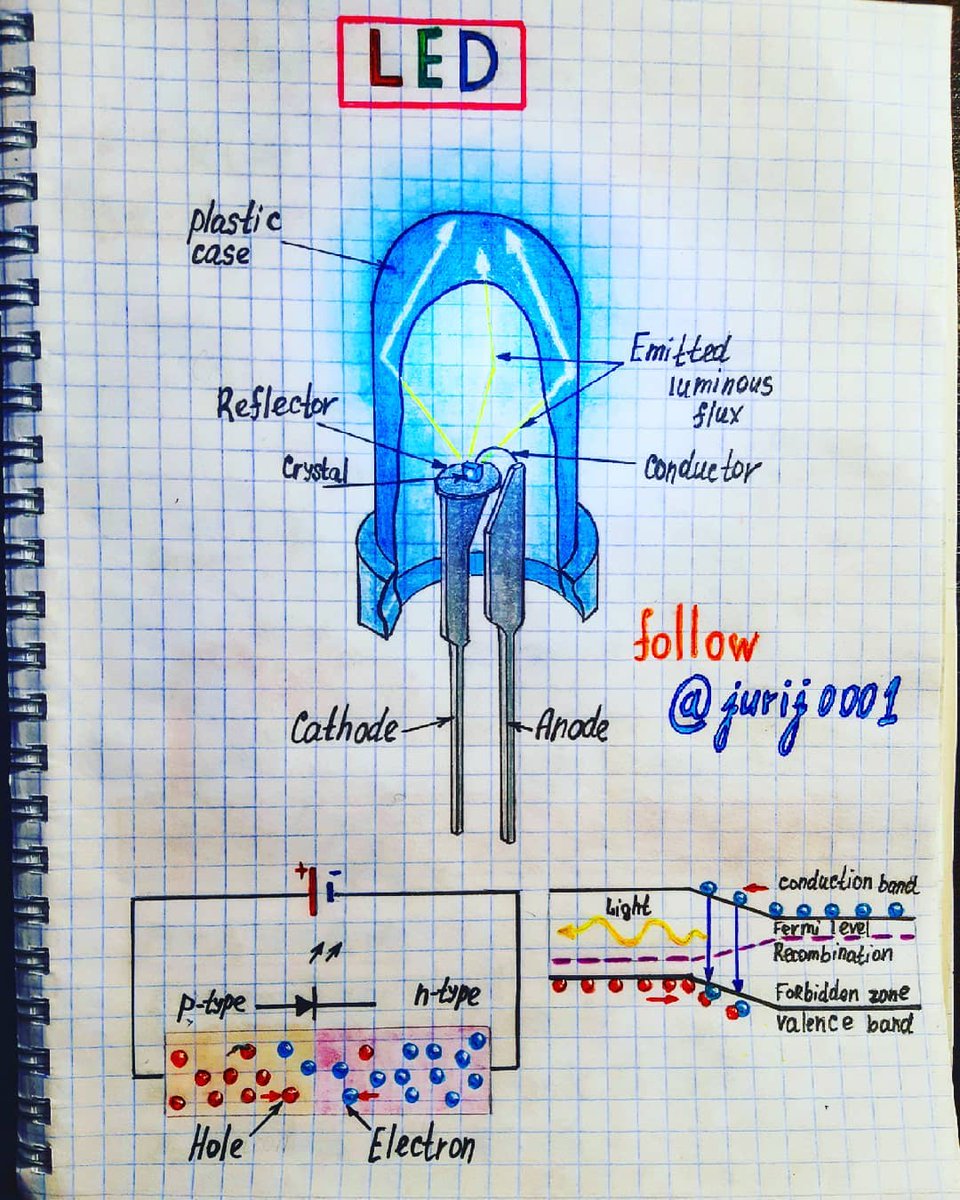 LED
plastic
case
Emitted
luminous
flux
Reflector
Crystal
conductor
follow
@jurij0001
Cathode
Anode
+ -
conduction band
Light
Fermi level
Recombination
p-type
n-type
Forbidden zone
valence band
Hole
Electron